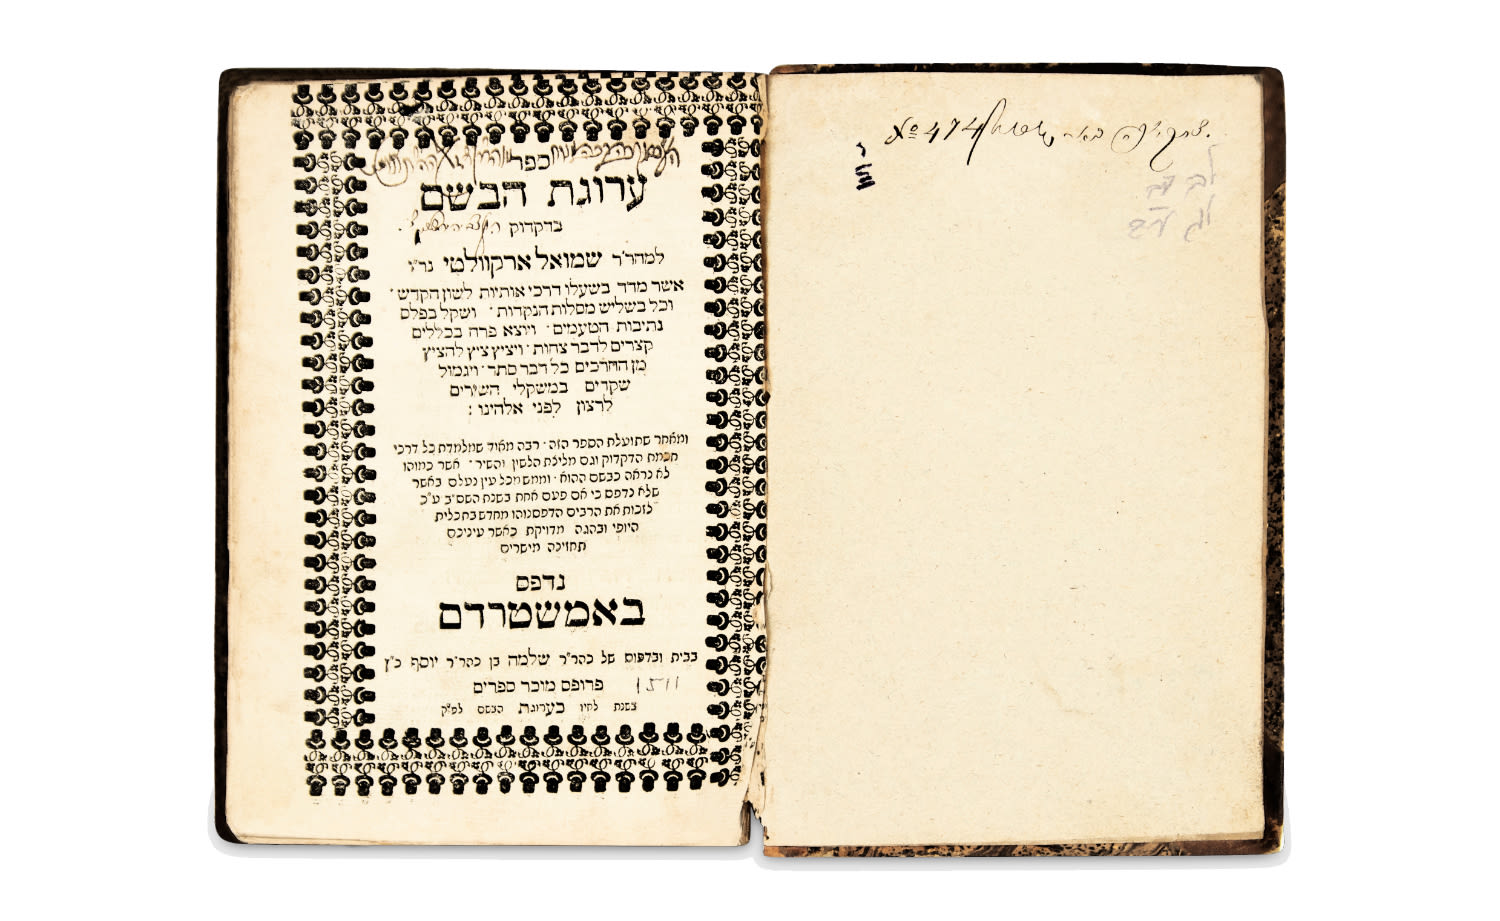 No 474
ספר
ערוגת הבשם
בדקדוק
למהר״ר שמואל ארקוולטי נר״ו
אשר מדד בשעלו דרכי אותיות לשון הקדש ·
וכל בשליש מסלות הנקדות · ושקל בפלס
נתיבות הטעמים · ויוצא פרה בכללים
קצרים לדבר צחות · ויציץ ציץ להציץ
מן החרכים כל דבר סתר · ויגמול
שקדים במשקלי השירים
לרצון לפני אלהינו :
ומאחר שתועלת הספר הזה · רבה מאוד שמלמדת כל דרכי
חכמת הדקדוק וגם מליצת הלשון והשיר · אשר כמוהו
לא נראה כבשם ההוא · וממש מכל עין נעלם באשר
שלא נדפס כי אם פעם אחת בשנת השס״ב ע״כ
לזכות את הרבים הדפסנוהו מחדש בתכלית
היופי ובהגה מדויקת כאשר עיניכם
תחזינה מישרים
נדפס
באמשטרדם
בבית ובדפוס של כהר״ר שלמה בן כהר״ר יוסף כ״ץ
פרופס מוכר ספרים
בשנת לחיו כערוגת הבשם לפ״ק